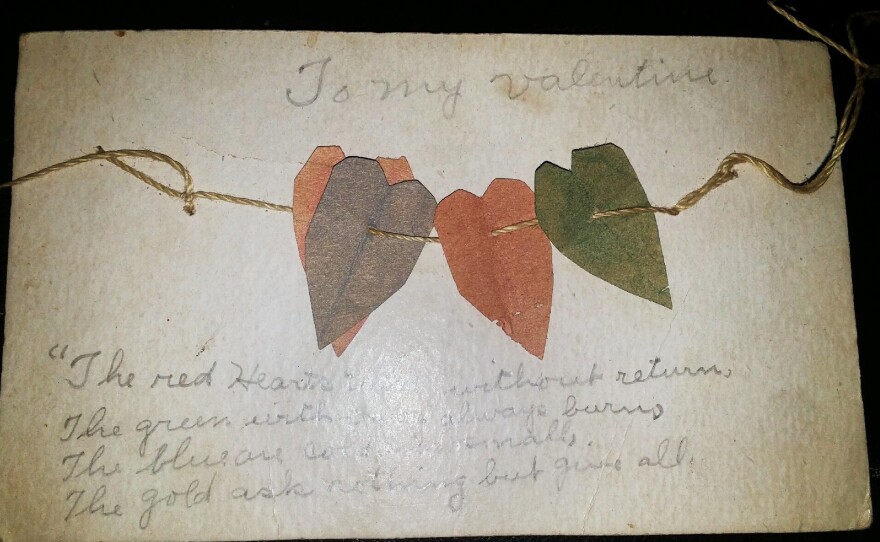 To my valentine
"The red Hearts without return,
The green with always burn,
The blue are small,
The gold ask nothing but give all.